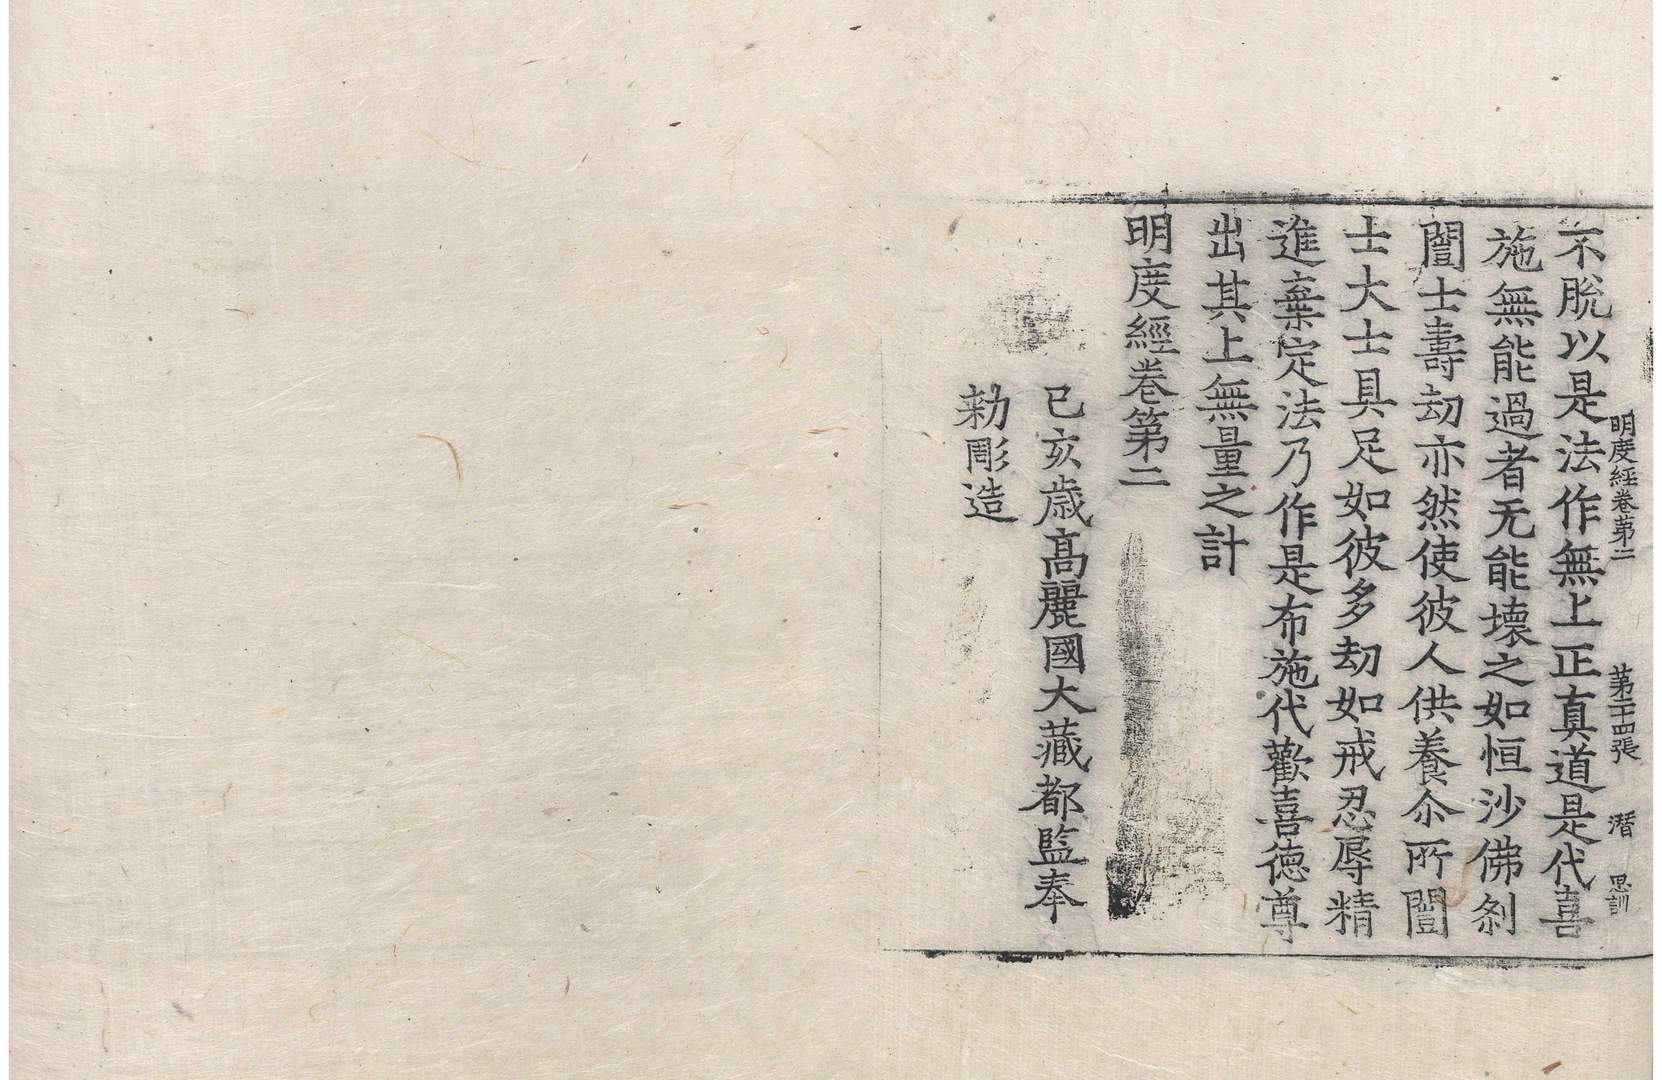 明度經卷第二 第二十四張 潛 思訓
不脫以是法作無上正真道是代喜
施無能過者无能壞之如恒沙佛刹
闓士壽劫亦然使彼人供養尒所闓
士大士具足如彼多劫如戒忍辱精
進棄定法乃作是布施代歡喜德尊
出其上無量之計
明度經卷第二
己亥歲高麗國大藏都監奉
勑彫造